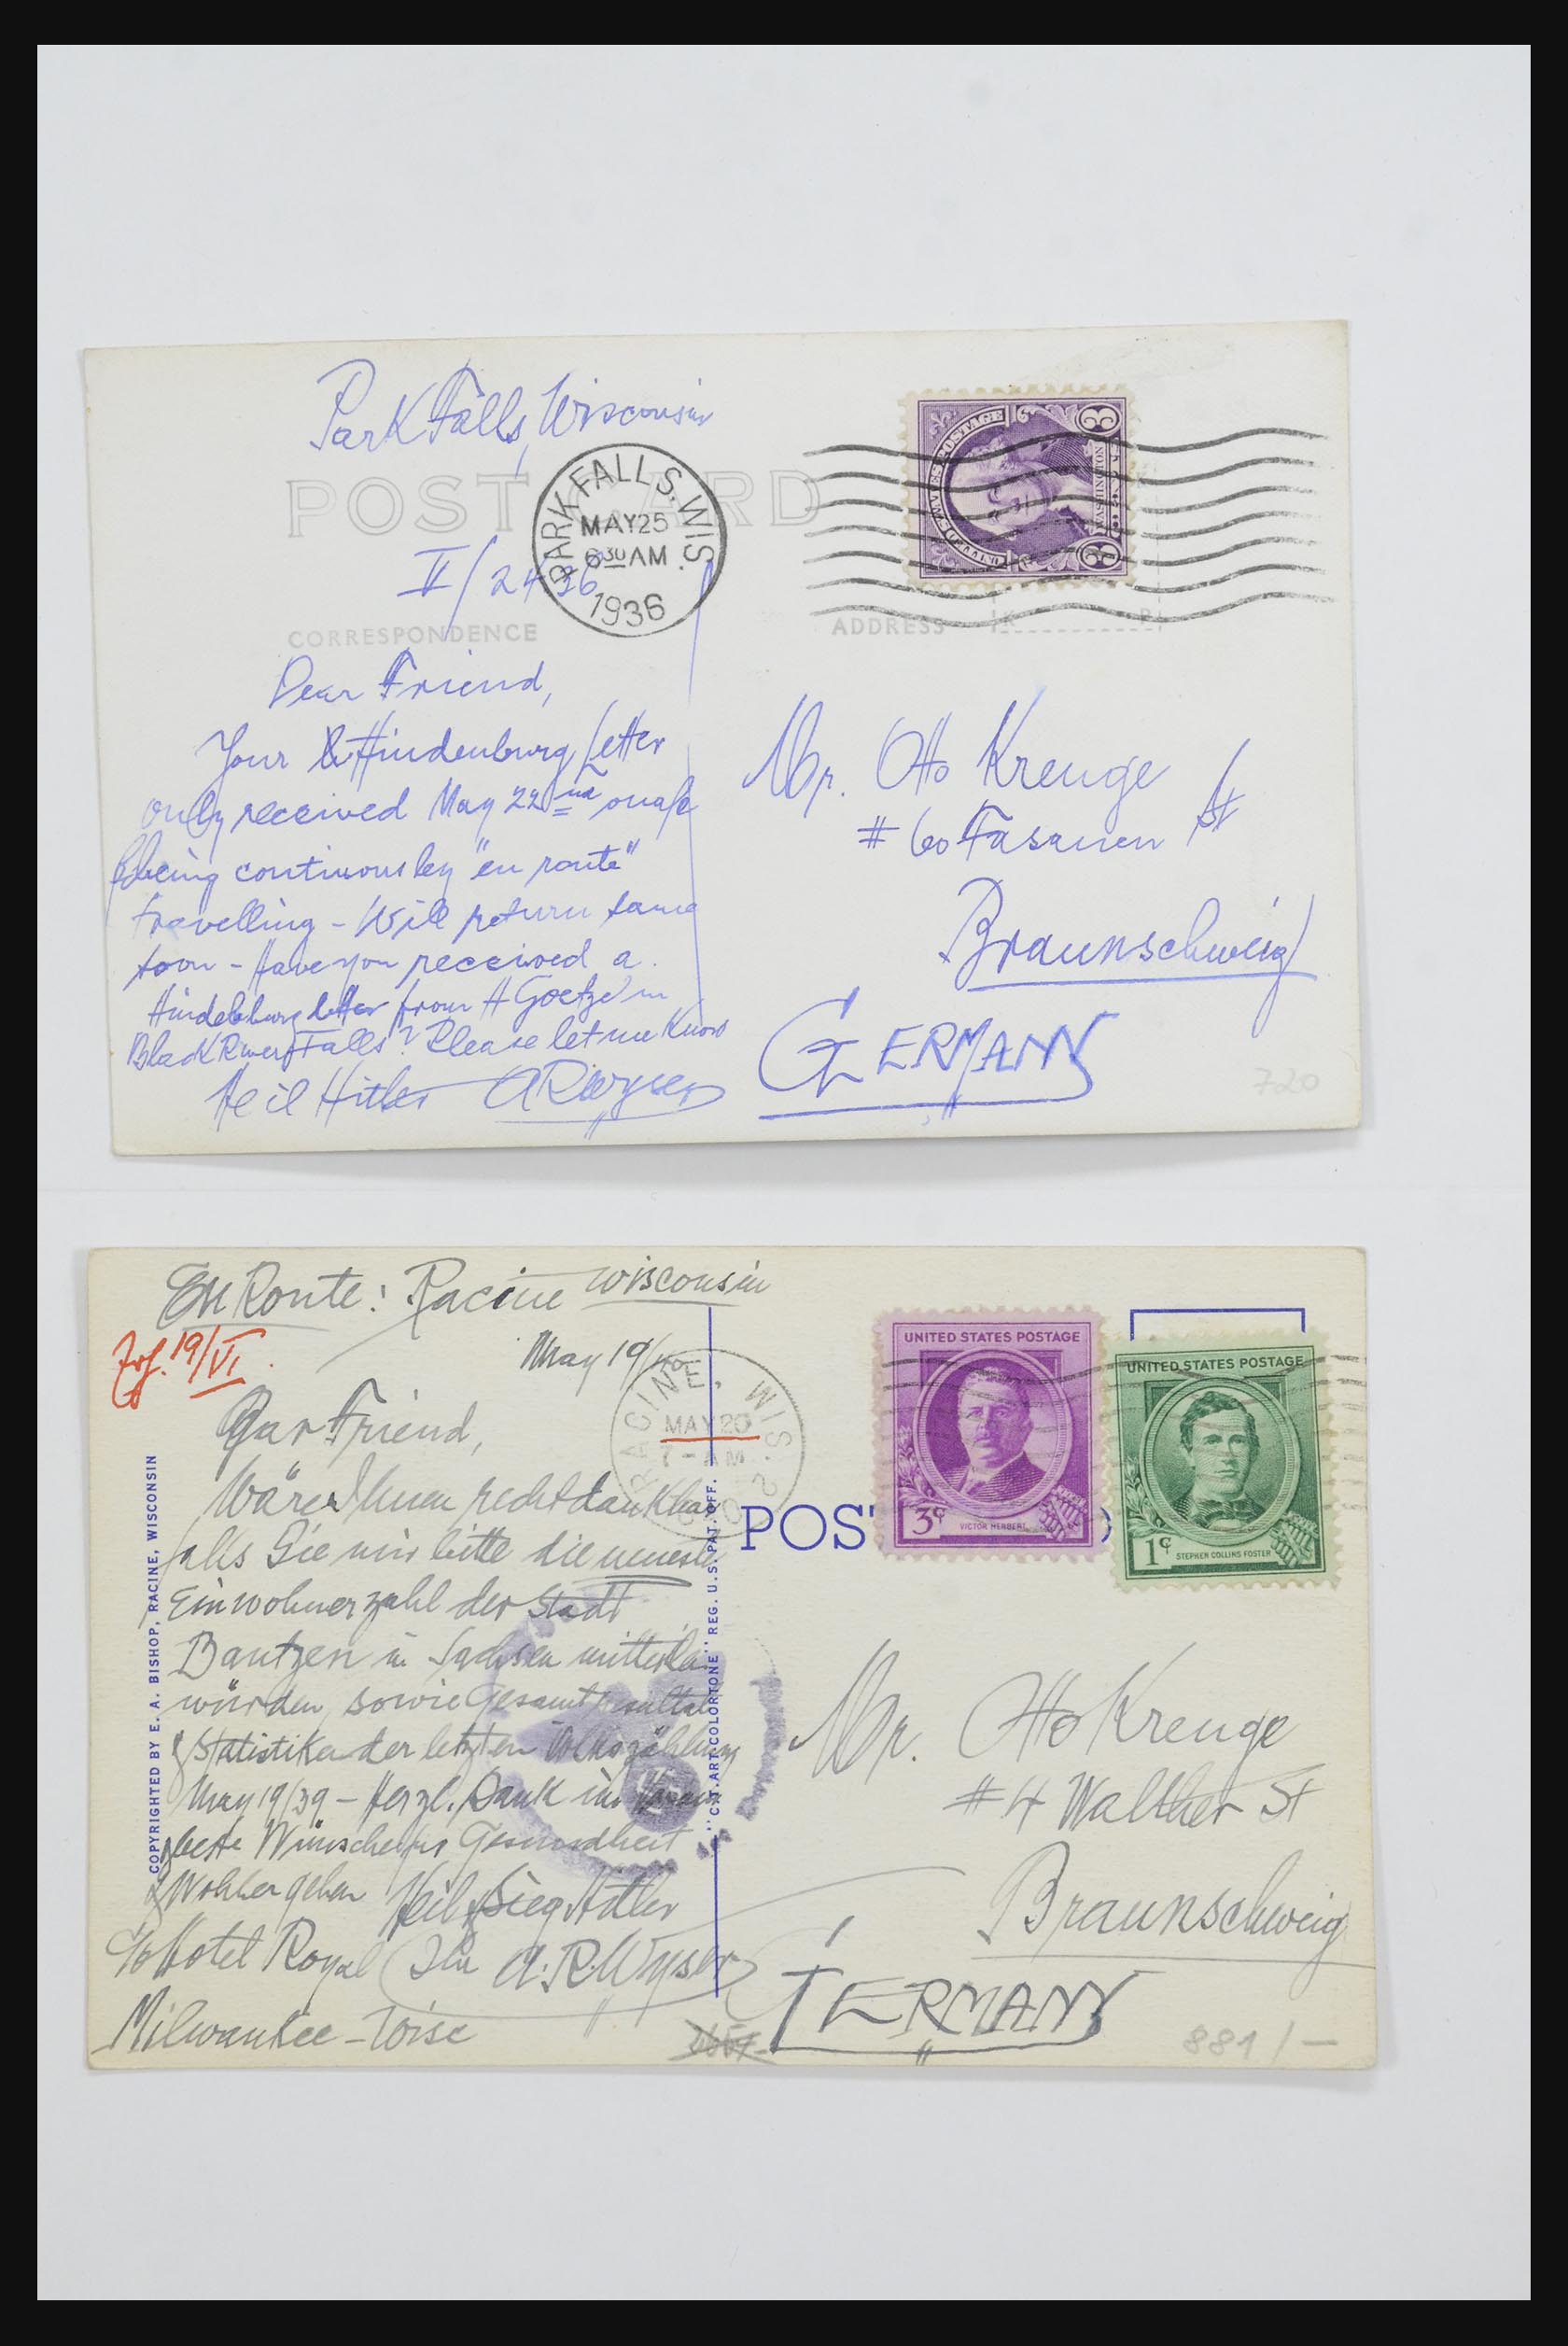 Park Falls, Wisconsin
POST CARD
PARK FALLS. WIS.
MAY 25
6 30 AM
1936
V/24 36
UNITED STATES POSTAGE
WASHINGTON
3 3
CORRESPONDENCE
ADDRESS
Dear Friend,
Your Hindenburg Letter
only received May 22nd
being continously "en route"
travelling - Will return same
soon - Have you received a
Hindebburg letter from H Goetze in
Black River Falls? Please let me know
Heil Hitler A R Wyser
Mr. Otto Krenge
# 60 Fasanen St
Braunschweig
GERMANY
720
En Route: Racine Wisconsin
19/VI
May 19/40
RACINE, WIS.
MAY 20
AM
UNITED STATES POSTAGE
3¢
VICTOR HERBERT
UNITED STATES POSTAGE
1¢
STEPHEN COLLINS FOSTER
POS
Dear Friend,
Wäre Ihnen recht dankbar
falls Sie mir bitte die neueste
Einwohnerzahl der Stadt
Bautzen in Sachsen mitteilen
würden, sowie Gesamtresultate
& Statistiken der letzten Volkszählung
May 19/39 - Herzl. Dank im Voraus
beste Wünsche für Gesundheit
& Wohlergehen Heil & Sieg Hitler
c/o Hotel Royal Ihr A. R. Wyser
Milwaukee - Wisc
COPYRIGHTED BY E. A. BISHOP, RACINE, WISCONSIN
"C.T. ART-COLORTONE" REG. U.S. PAT. OFF.
Mr. Otto Krenge
# 4 Walther St
Braunschweig
GERMANY
881/-